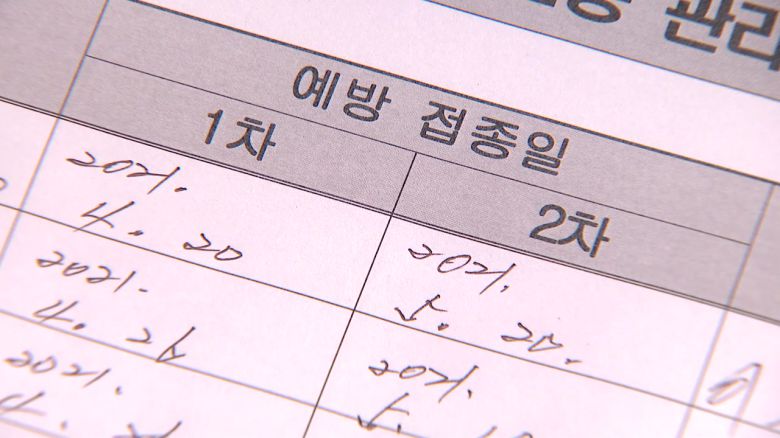 관리
예방 접종일
1차
2차
2021.
4. 20
2021.
5. 20.
2021.
4.
2021.
2021.
4.
5.